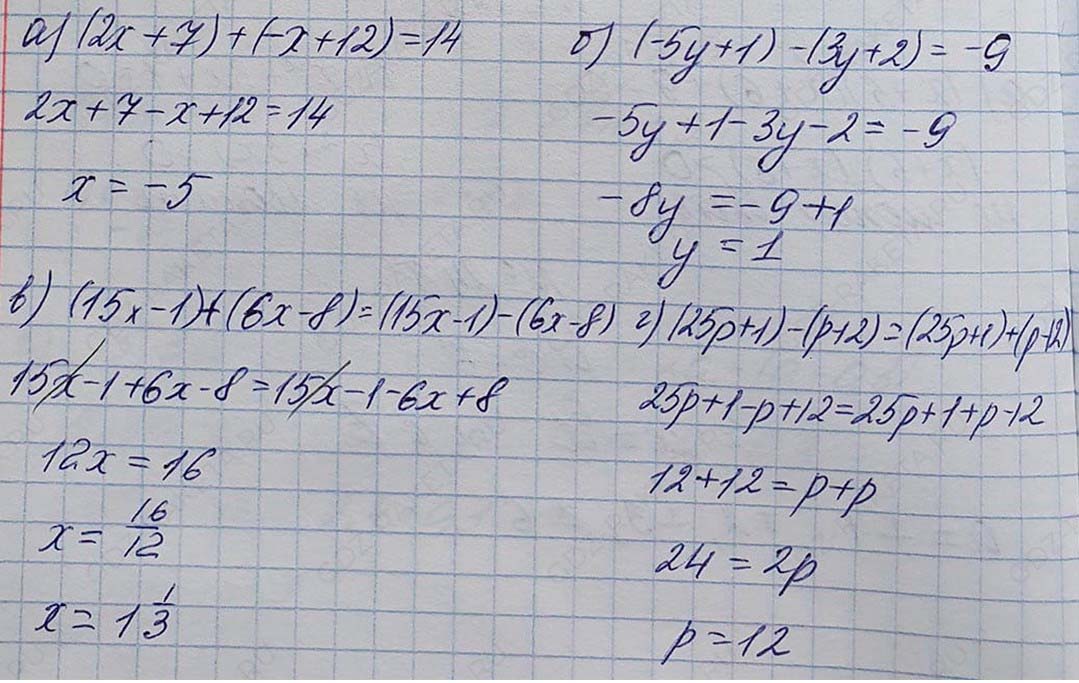 а) (2x+7)+(-x+12)=14
2x+7-x+12=14
x=-5
б) (-5y+1)-(3y+2)=-9
-5y+1-3y-2=-9
-8y=-9+1
y=1
в) (15x-1)+(6x-8)=(15x-1)-(6x-8)
15x-1+6x-8=15x-1-6x+8
12x=16
x=16/12
x=1 1/3
г) (25p+1)-(p-12)=(25p+1)+(p-12)
25p+1-p+12=25p+1+p-12
12+12=p+p
24=2p
p=12